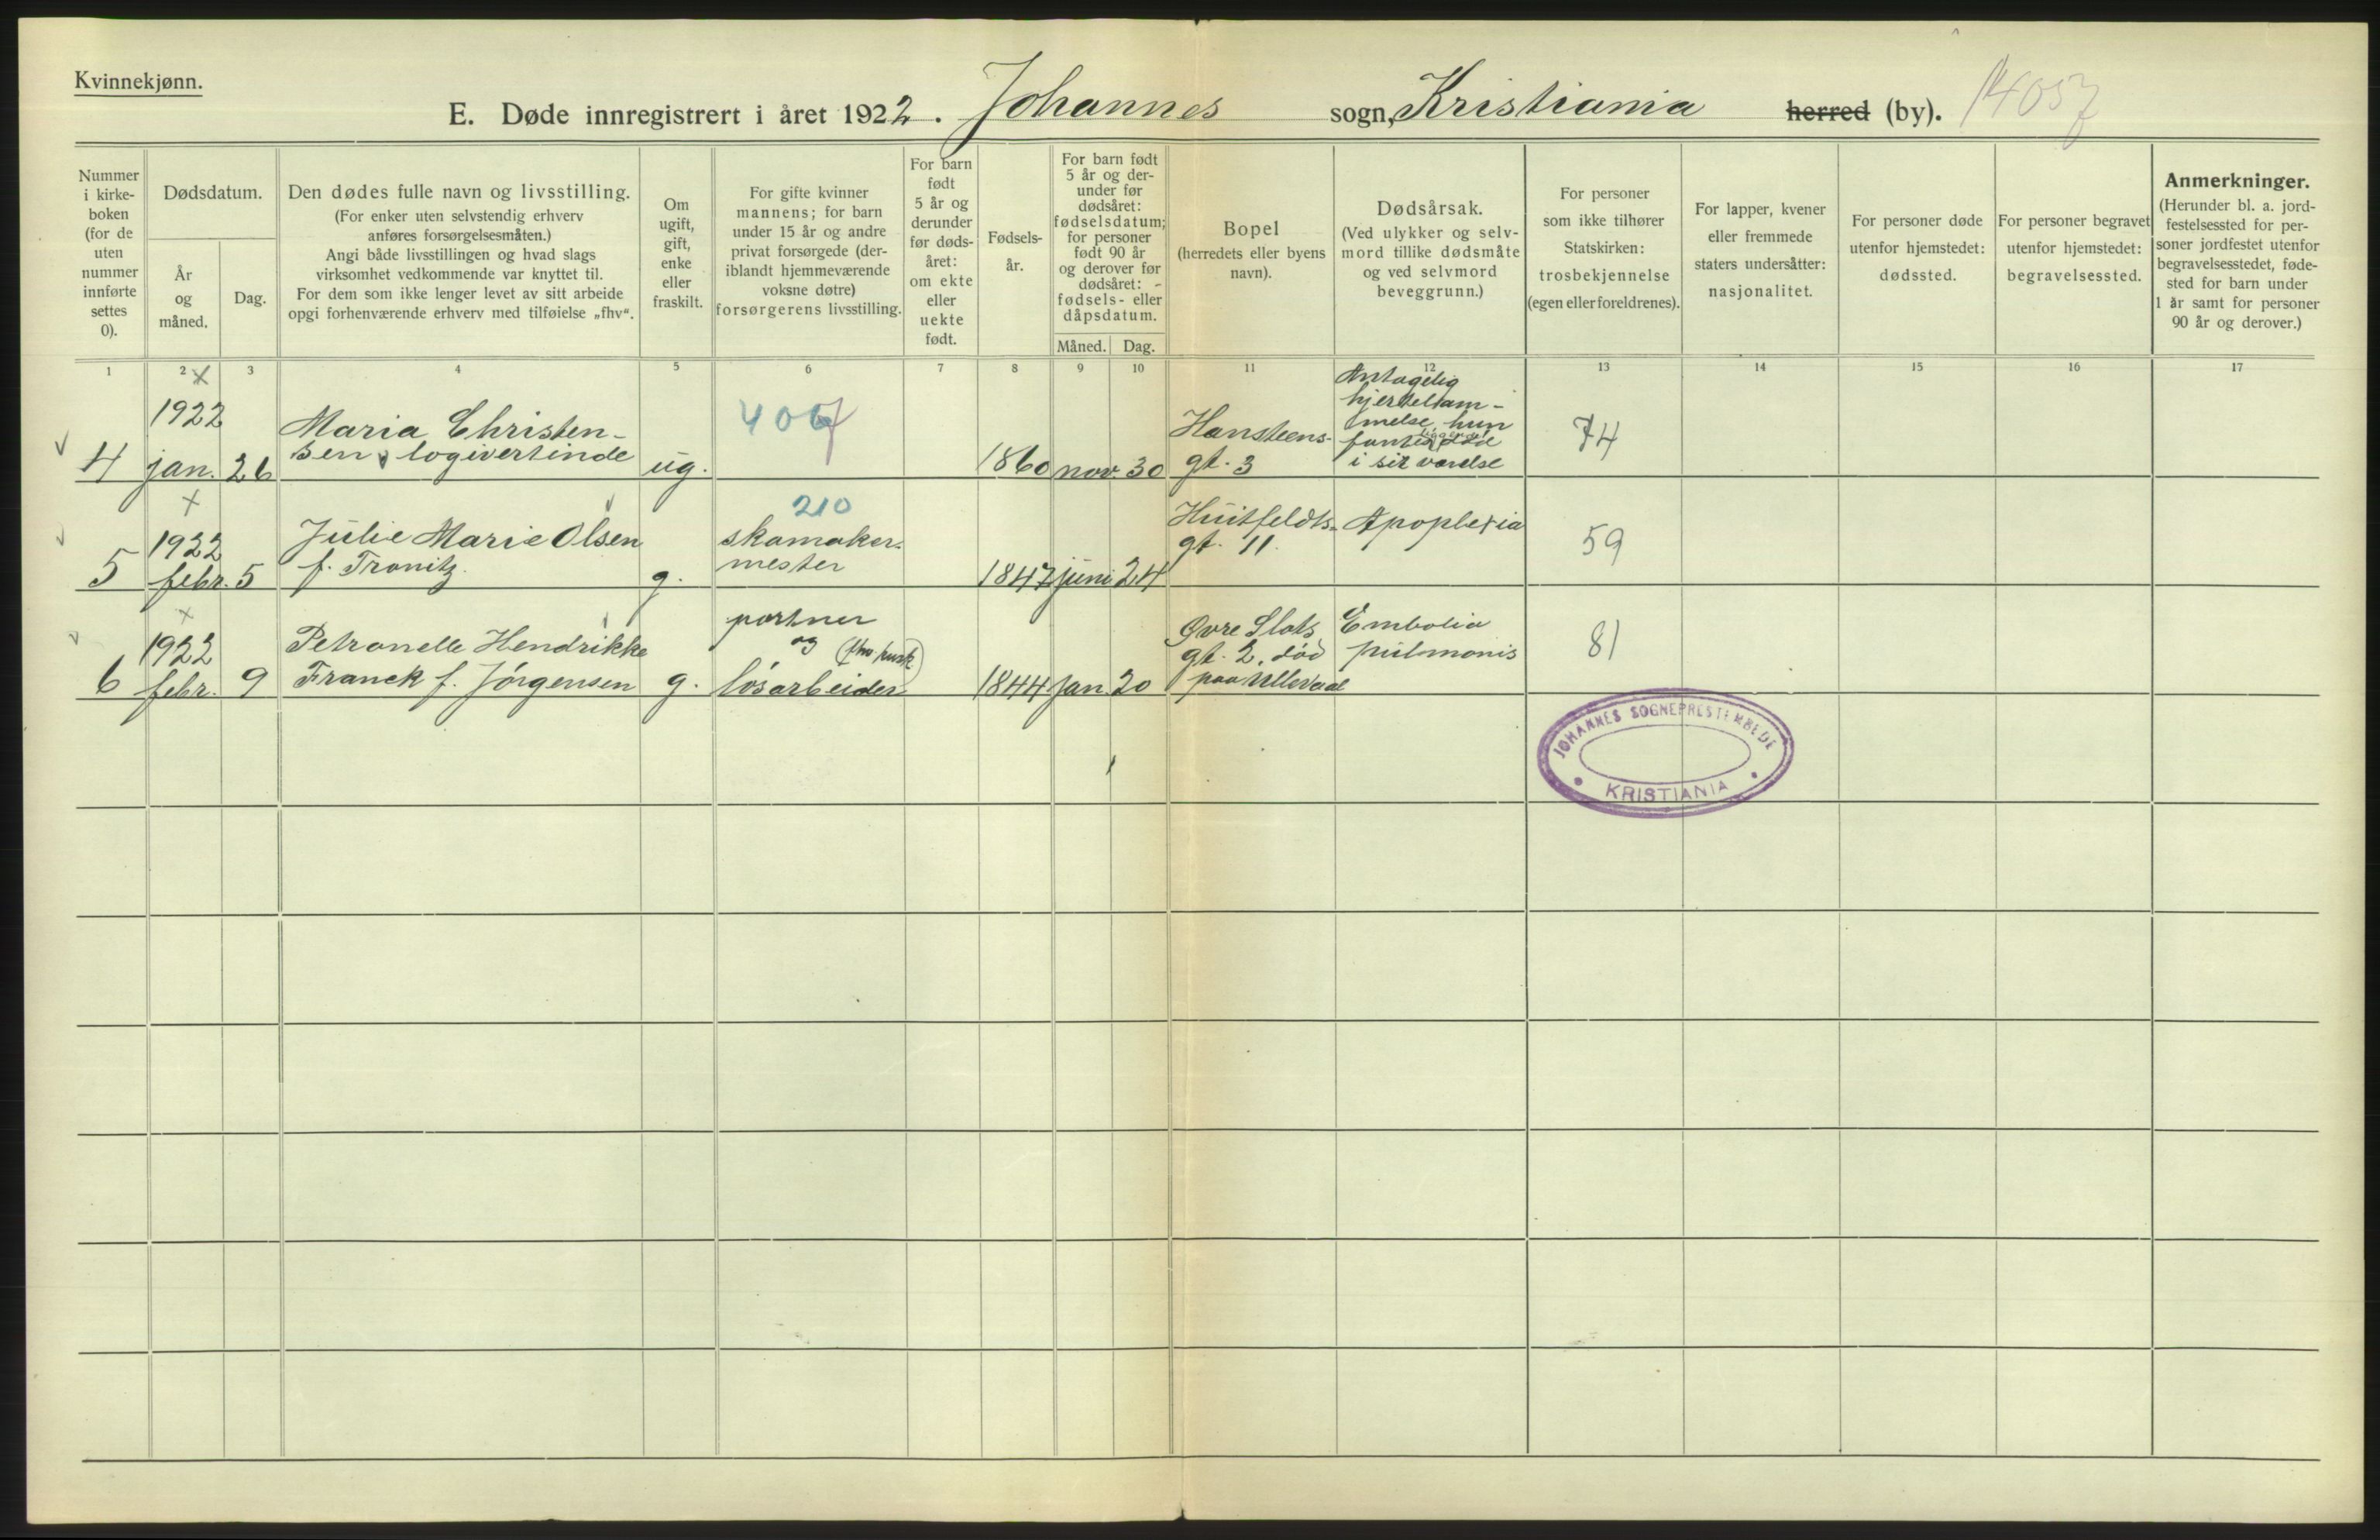 Kvinnekjønn.
E. Døde innregistrert i året 1922. Johannes sogn, Kristiania herred (by). 14057
Nummer
i kirke-
boken
(for de
uten
nummer
innførte
settes
0).
Dødsdatum.
År
og
måned.
Dag.
Den dødes fulle navn og livsstilling.
(For enker uten selvstendig erhverv
anføres forsørgelsesmåten.)
Angi både livsstillingen og hvad slags
virksomhet vedkommende var knyttet til.
For dem som ikke lenger levet av sitt arbeide
opgi forhenværende erhverv med tilføielse „fhv“.
Om
ugift,
gift,
enke
eller
fraskilt.
For gifte kvinner
mannens; for barn
under 15 år og andre
privat forsørgede (der-
iblandt hjemmeværende
voksne døtre)
forsørgerens livsstilling.
For barn
født
5 år og
derunder
før døds-
året:
om ekte
eller
uekte
født.
Fødsels-
år.
For barn født
5 år og der-
under før
dødsåret:
fødselsdatum;
for personer
født 90 år
og derover før
dødsåret:
fødsels- eller
dåpsdatum.
Måned. Dag.
Bopel
(herredets eller byens
navn).
Dødsårsak.
(Ved ulykker og selv-
mord tillike dødsmåte
og ved selvmord
beveggrunn.)
For personer
som ikke tilhører
Statskirken:
trosbekjennelse
(egen eller foreldrenes).
For lapper, kvener
eller fremmede
staters undersåtter:
nasjonalitet.
For personer døde
utenfor hjemstedet:
dødssted.
For personer begravet
utenfor hjemstedet:
begravelsessted.
Anmerkninger.
(Herunder bl. a. jord-
festelsessted for per-
soner jordfestet utenfor
begravelsesstedet, føde-
sted for barn under
1 år samt for personer
90 år og derover.)
1 2 3 4 5 6 7 8 9 10 11 12 13 14 15 16 17
x
4
1922
jan. 26
Maria Christen-
sen, logivertinde
ug.
1860 nov. 30
Hansteens-
gt. 3
Antagelig
hjertelam-
melse, hun
død
i sit værelse
74
x
5
1922
febr. 5
Julie Marie Olsen
f. Tronitz.
g.
210
skomaker-
mester
1847 juni 24
Huitfeldts-
gt. 11.
Apoplexia
59
x
6
1922
febr. 9
Petronelle Hendrikke
Franck f. Jörgensen
g.
portner
og
lösarbeider
1844 jan. 20
Øvre Slots
gt. 2, död
paa Ullevaal
Embolia
pulmonis
81
JOHANNES SOGNEPRESTEMBEDE
KRISTIANIA